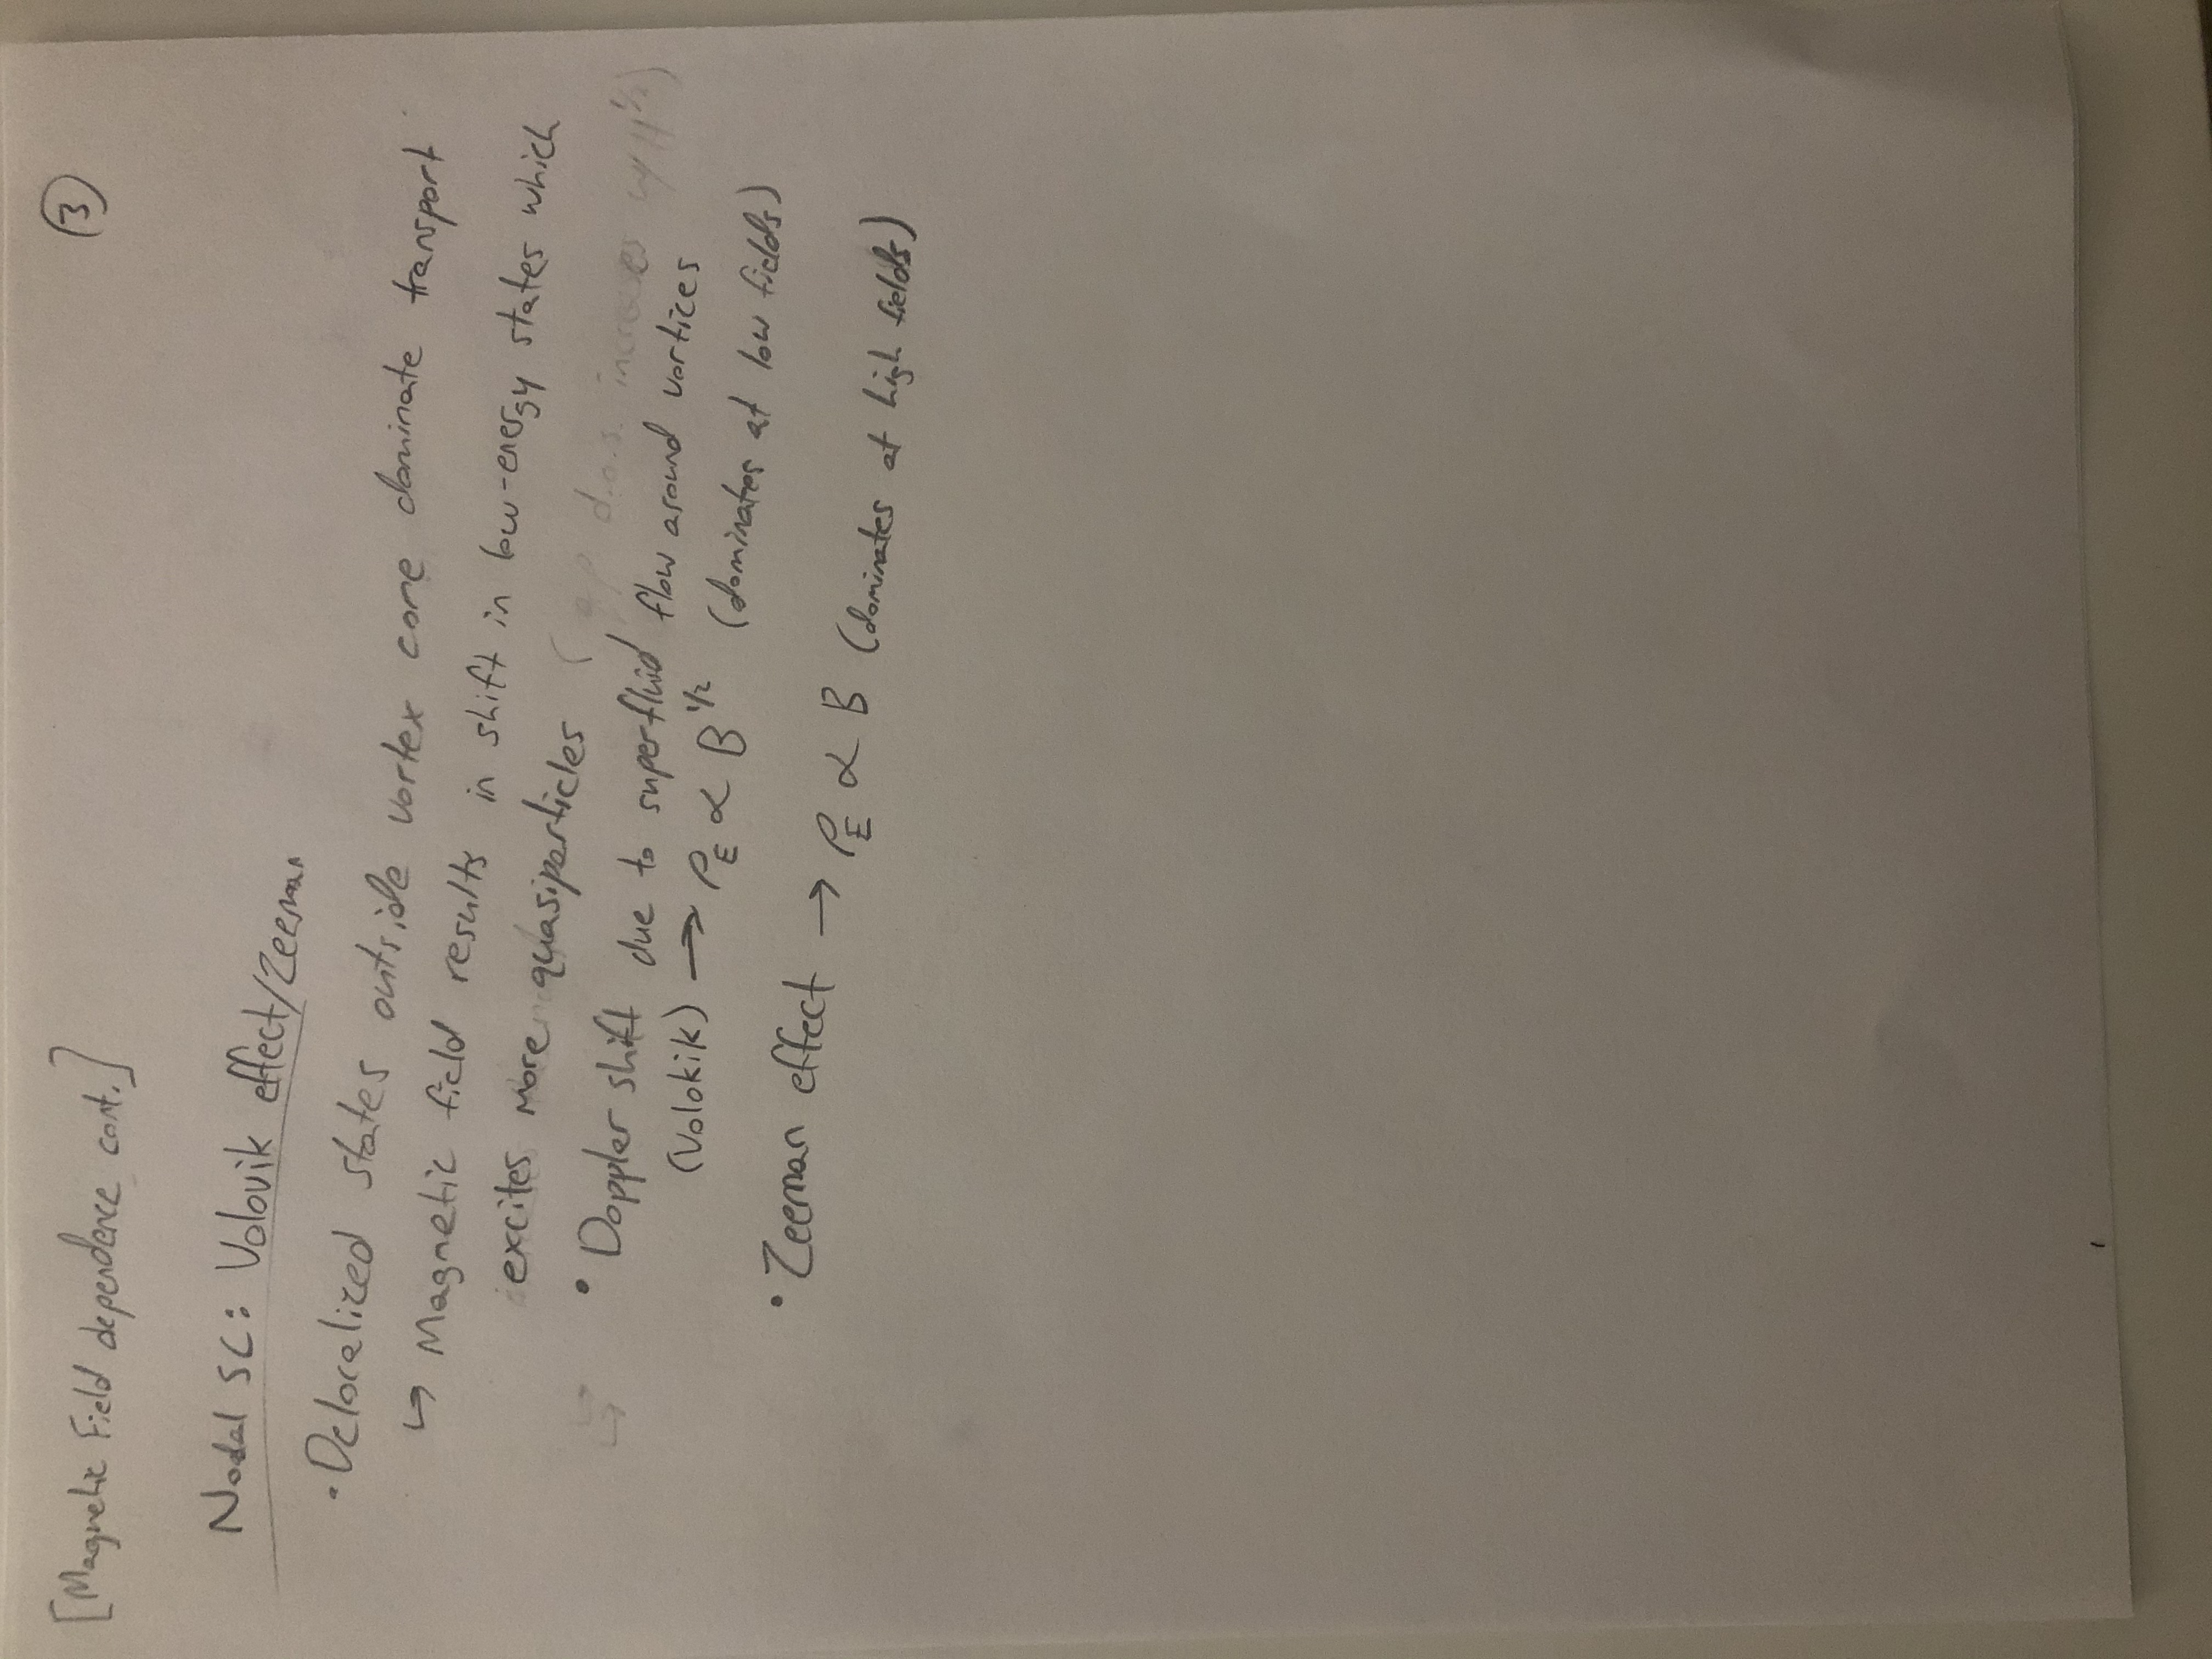 [Magnetic Field dependence cont.]
③
Nodal SC: Volovik effect/Zeeman
· Delocalized states outside vortex core dominate transport
↳ Magnetic field results in shift in low-energy states which
excites more quasiparticles (qp d.o.s. increases w/ H^1/2)
• Doppler shift due to superfluid flow around vortices
(Volokik) → ρ_E ∝ B^1/2 (dominates at low fields)
• Zeeman effect → ρ_E ∝ B (dominates at high fields)